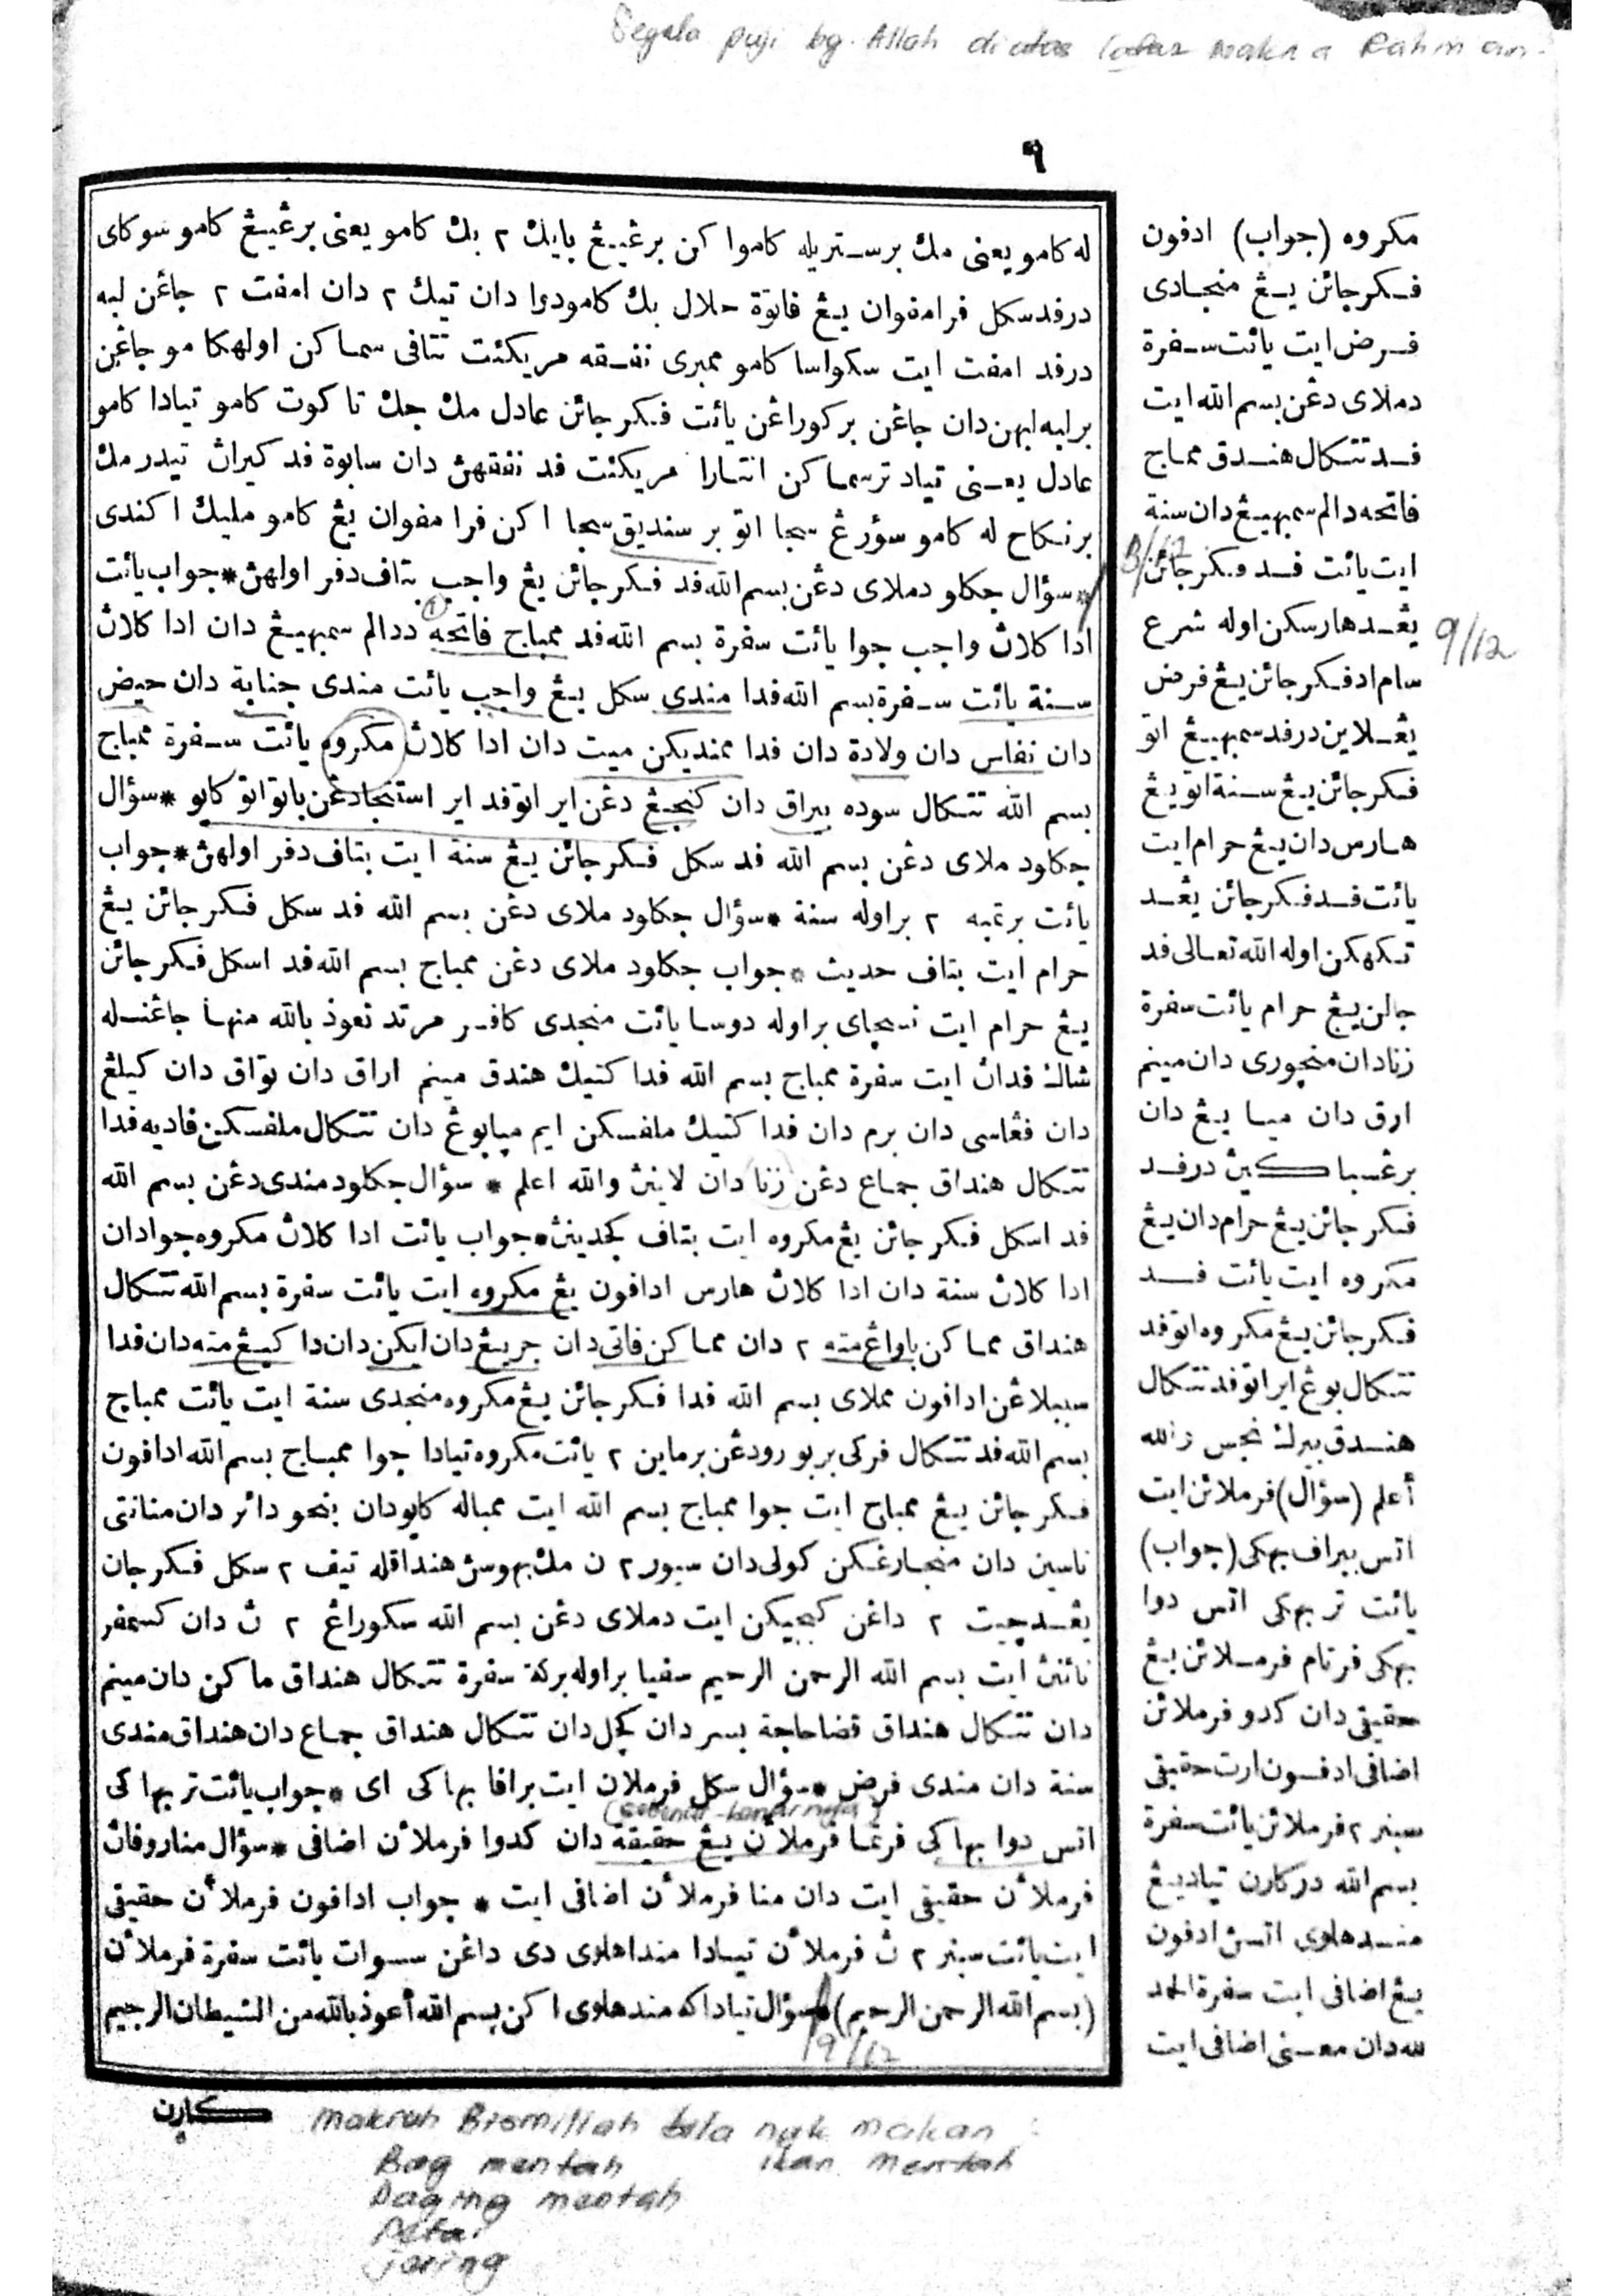 Segala puji bg. Allah diatas lafaz makna Rahman
٩
له كامو يعنى مك برستريله كاموا كن برڠييڠ بايك ٢ بك كامو يعنى برڠييڠ كامو سوكاى
درفد سكل فرامفوان يڠ فاتوة حلال بك كامودوا دان تيك ٢ دان امفت ٢ جاڠن لبه
درفد امفت ايت سكواسا كامو ممبرى نفقه مريكئت تتافى سما كن اولهكا مو جاڠن
برلبه لبهن دان جاڠن بركوراڠن يائت فكرجائن عادل مك جك تا كوت كامو تيادا كامو
عادل يعنى تياد ترسما كن انتارا مريكئت فد نفقهڽ دان سابوة فد كيران تيدر مك
برنكاح له كامو سؤرڠ سجا اتو بر سنديق سجا اكن فرا مفوان يڠ كامو مليك اكندى
*سؤال جكلو دملاى دڠن بسم الله فد فكرجائن يڠ واجب بتاف دفر اولهڽ*جواب يائت
ادا كلاڽ واجب جوا يائت سفرة بسم الله فد ممباج فاتحه ددالم سمبهيڠ دان ادا كلاڽ
سنة يائت سفرة بسم الله فدا مندى سكل يڠ واجب يائت مندى جنابة دان حيض
دان نفاس دان ولادة دان فدا ممنديكن ميت دان ادا كلاڽ مكروه يائت سفرة ممباج
بسم الله تتكال سوده بيراق دان كنجيڠ دڠن اير اتوفد اير استنجادڠن باتو اتو كايو *سؤال
جكلود ملاى دڠن بسم الله فد سكل فكرجائن يڠ سنة ايت بتاف دفر اولهڽ*جواب
يائت برتمبه ٢ براوله سنة *سؤال جكلود ملاى دڠن بسم الله فد سكل فكرجائن يڠ
حرام ايت بتاف حديث *جواب جكلود ملاى دڠن ممباج بسم الله فد اسكل فكرجائن
يڠ حرام ايت نسچاى براوله دوسا يائت منجدى كافر مرتد نعوذ بالله منها جاڠنله
شاك فداڽ ايت سفرة ممباج بسم الله فدا كتيك هندق مينم اراق دان تواق دان كيلڠ
دان فڠاسى دان برم دان فدا كتيك ملفسكن ايم مپابوڠ دان تتكال ملفسكن فاديه فدا
تتكال هنداق جماع دڠن زنا دان لاينڽ والله اعلم * سؤال جكلود مندى دڠن بسم الله
فد اسكل فكرجائن يڠ مكروه ايت بتاف كجدينڽ*جواب يائت ادا كلاڽ مكروه جوادان
ادا كلاڽ سنة دان ادا كلاڽ هارس ادافون يڠ مكروه ايت يائت سفرة بسم الله تتكال
هنداق مما كن باواڠ منته ٢ دان مما كن فاتى دان جريڠ دان ايكن دان دا كيڠ منته دان فدا
سبيلاڠن ادافون مملاى بسم الله فدا فكرجائن يڠ مكروه منجدى سنة ايت يائت ممباج
بسم الله فد تتكال فركى بربورودڠن برماين ٢ يائت مكروه تيادا جوا ممباج بسم الله ادافون
فكرجائن يڠ ممباج ايت جوا ممباج بسم الله ايت ممباله كايودان بنجو دائر دان منانتى
ناسين دان منجارڠكن كولى دان سيور ٢ ن مك بهوسڽ هنداقله تيف ٢ سكل فكرجان
يڠد چيت ٢ داڠن كبجيكن ايت دملاى دڠن بسم الله سكوراڠ ٢ ڽ دان كسمفر
نائنڽ ايت بسم الله الرحمن الرحيم سفيا براوله بركة سفرة تتكال هنداق ماكن دان مينم
دان تتكال هنداق قضا حاجة بسر دان كچل دان تتكال هنداق جماع دان هنداق مندى
سنة دان مندى فرض *سؤال سكل فرملان ايت برافا بهاكى اى *جواب يائت تربها كى
(sebenar-benarnya)
اتس دوا بهاكى فرتما فرملأن يڠ حقيقة دان كدوا فرملأن اضافى *سؤال مناروفاڽ
فرملأن حقيقى ايت دان منا فرملأن اضافى ايت * جواب ادافون فرملأن حقيقى
ايت يائت سبنر ٢ ڽ فرملأن تيادا منداهلوى دى داڠن سسوات يائت سفرة فرملأن
(بسم الله الرحمن الرحيم) *سؤال تياداكه مندهلوى اكن بسم الله أعوذ بالله من الشيطان الرجيم
19/12
كارن
مكروه (جواب) ادفون
فكرجائن يڠ منجادى
فرض ايت يائت سفرة
دملاى دڠن بسم الله ايت
فد تتكال هندق ممباج
فاتحه دالم سمبهيڠ دان سنة
ايت يائت فد فكرجائن
يڠد هارسكن اوله شرع
سام اد فكرجائن يڠ فرض
يڠلاين درفد سمبهيڠ اتو
فكرجائن يڠ سنة اتو يڠ
هارس دان يڠ حرام ايت
يائت فد فكرجائن يڠد
تكهكن اوله الله تعالى فد
جالن يڠ حرام يائت سفرة
زنا دان منچورى دان مينم
ارق دان ميا يڠ دان
برڠسبا كيڽ درفد
فكرجائن يڠ حرام دان يڠ
مكروه ايت يائت فد
فكرجائن يڠ مكروه اتوفد
تتكال بوڠ اير اتوفد تتكال
هندق بيرك نجس والله
أعلم (سؤال) فرملائن ايت
اتس بيراف بهكى (جواب)
يائت تر بهكى اتس دوا
بهكى فرتام فرملائن يڠ
حقيقى دان كدو فرملائن
اضافى ادفون ارت حقيقى
سبنر ٢ فرملائن يائت سفرة
بسم الله دركارن تياد يڠ
مندهلوى اتسڽ ادفون
يڠ اضافى ايت سفرة الحمد
لله دان معنى اضافى ايت
9/12
makruh Bismillah bila nak makan :
Bag mentah ikan mentah
Daging mentah
Petai
Jering